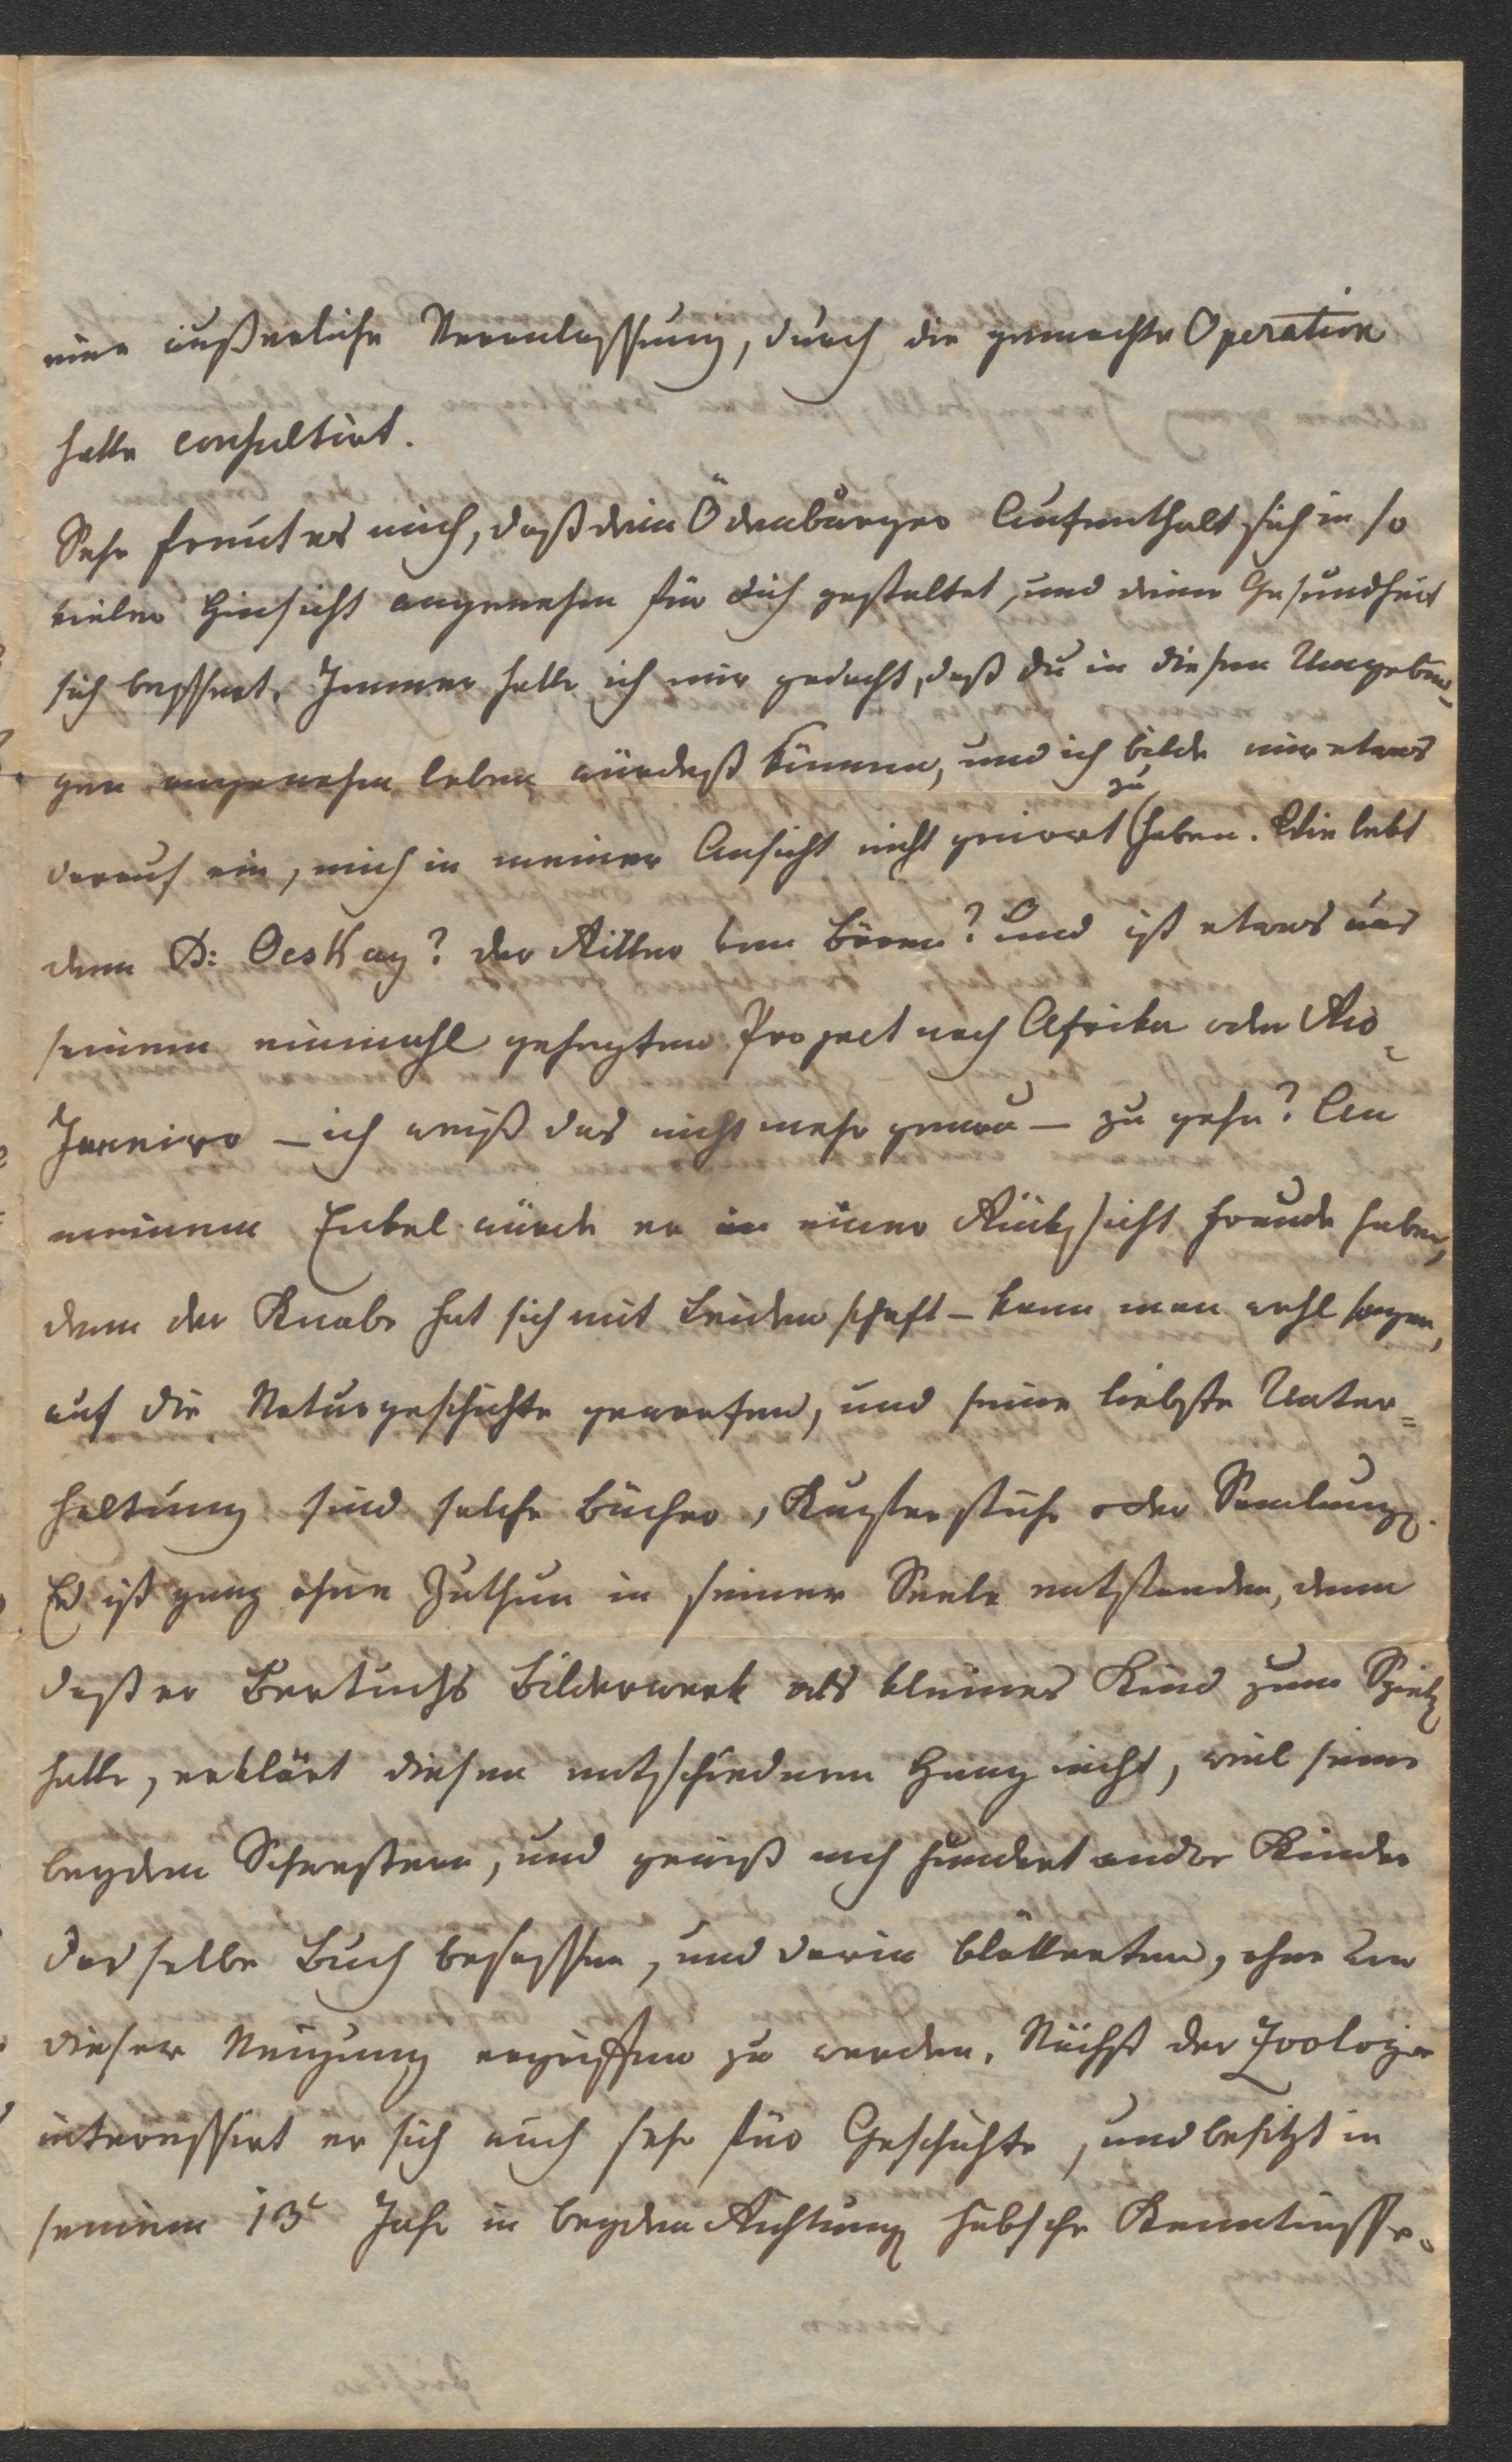 eine äußerliche Veranlassung, durch die gemachte Operation
hatte consultirt.
Sehr freut es mich, daß dein Ödenburger Aufenthalt sich in so
vieler Hinsicht angenehm für dich gestaltet, und deine Gesundheit
sich bessert. Immer hatte ich mir gedacht, daß du in diesen Umgebun-
gen angenehm leben würdest können, und ich bilde mir etwas
darauf ein, mich in meiner Ansicht nicht geirrt zu haben. Wie lebt
denn D: Oeskay? der Ritter von Bären? Und ist etwas aus
seinem einmahl gehegten Project nach Afrika oder Rio-
Janeiro – ich weiß das nicht mehr genau – zu gehn? An
meinem Enkel würde er in einer Rücksicht Freude haben,
denn der Knabe hat sich mit Leidenschaft – kann man wohl sagen,
auf die Naturgeschichte geworfen, und seine liebste Unter=
haltung sind solche Bücher, Kupferstiche oder Samlungen.
Es ist ganz ohne Zuthun in seiner Seele entstanden, denn
daß er Bertuchs Bilderwerk als kleines Kind zum Spielen
hatte, erklärt diesen entschiedenen Hang nicht, weil seine
beyden Schwestern, und gewiß noch hundert andre Kinder
dasselbe Buch besassen, und darin blätterten, ohne von
dieser Neigung ergriffen zu werden. Nächst der Zoologie
interessirt er sich auch sehr für Geschichte, und besitzt in
seinem 13t Jahr in beyden Richtungen hübsche Kenntnisse.